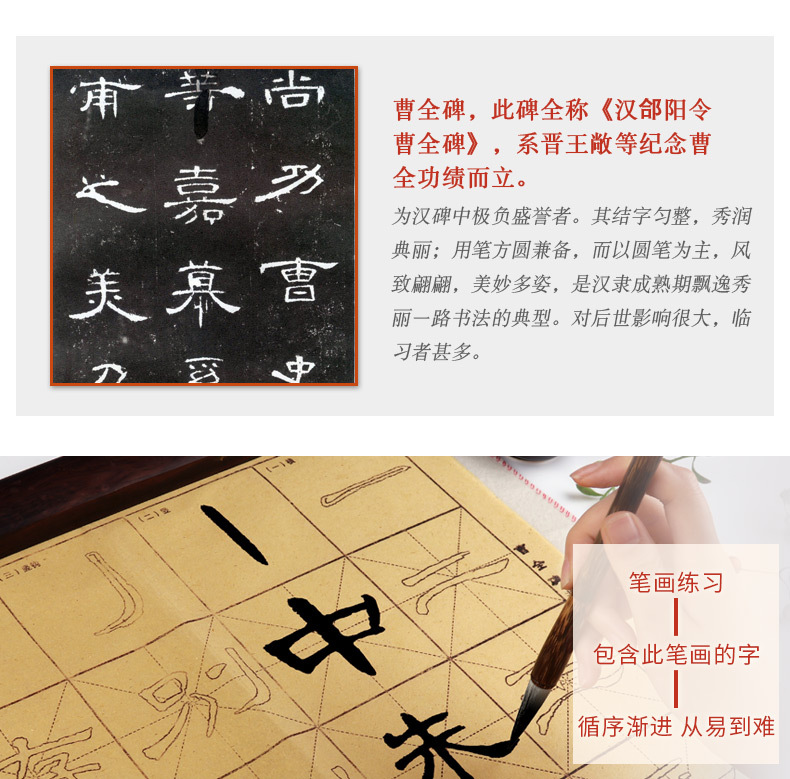 尚功曹史
等嘉慕
甫之美乃
曹全碑，此碑全称《汉郃阳令
曹全碑》，系晋王敞等纪念曹
全功绩而立。
为汉碑中极负盛誉者。其结字匀整，秀润
典丽；用笔方圆兼备，而以圆笔为主，风
致翩翩，美妙多姿，是汉隶成熟期飘逸秀
丽一路书法的典型。对后世影响很大，临
习者甚多。
(一)横
(二)竖
一
中
未
笔画练习
包含此笔画的字
循序渐进 从易到难